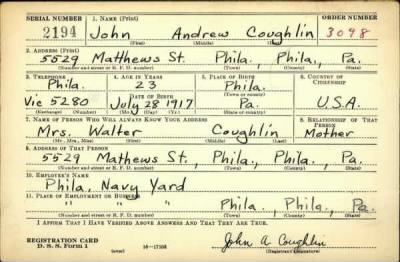 SERIAL NUMBER 1. NAME (Print) ORDER NUMBER
2194 John Andrew Coughlin 3098
(First) (Middle) (Last)
2. ADDRESS (Print)
5529 Matthews St. Phila., Phila., Pa.
(Number and street or R. F. D. number) (Town) (County) (State)
3. TELEPHONE 4. AGE IN YEARS 5. PLACE OF BIRTH 6. COUNTRY OF CITIZENSHIP
Phila. 23 Phila.
DATE OF BIRTH (Town or county)
Vic 5280 July 28 1917 Pa. U.S.A.
(Exchange) (Number) (Mo.) (Day) (Yr.) (State or country)
7. NAME OF PERSON WHO WILL ALWAYS KNOW YOUR ADDRESS 8. RELATIONSHIP OF THAT PERSON
Mrs. Walter Coughlin Mother
(Mr., Mrs., Miss) (First) (Middle) (Last)
9. ADDRESS OF THAT PERSON
5529 Mathews St., Phila., Phila., Pa.
(Number and street or R. F. D. number) (Town) (County) (State)
10. EMPLOYER'S NAME
Phila, Navy Yard
11. PLACE OF EMPLOYMENT OR BUSINESS
" " " Phila. Phila., Pa.
(Number and street or R. F. D. number) (Town) (County) (State)
I AFFIRM THAT I HAVE VERIFIED ABOVE ANSWERS AND THAT THEY ARE TRUE.
REGISTRATION CARD
D. S. S. Form 1 (over) 16—17105 John A Coughlin
(Registrant's signature)